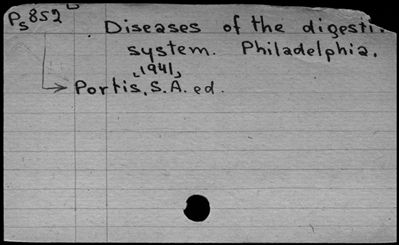 Ps852 Diseases of the digesti
system. Philadelphia,
[1941]
Portis, S.A. ed.